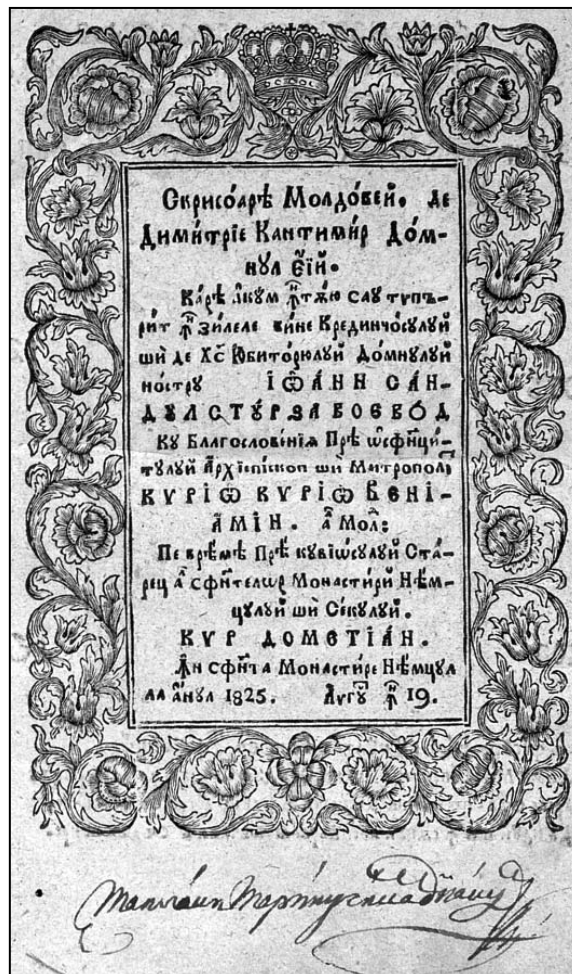 Скрисо́арѣ Молдо́вей. де
Дими́трїе Кантими́р До́м-
нꙋл є҆і́й.
Ка́рѣ а҆кꙋ́м ꙟ҆тѫ́ю сау типъ-
ри́т ꙟ҆ зи́леле Бине Крединчо́сꙋлꙋй
ши́ де Хс҃ Юбито́рюлꙋй До́мнꙋлꙋй
ностру І҆ѠА́НН САН-
ДꙊЛ СТꙊ́РꙂА ВОЕВО́Д
Кꙋ Благослове́нїѧ Прѣ ѡ҆сфинци́-
тꙋлꙋй А҆рхїепі́скоп ши́ Митропол꙯
КѴРІѠ КѴРІѠ ВЕНІ-
АМІ́Н. а҆ Мол꙯:
Пе врѣ́мѣ Прѣ кꙋвїѡ́сꙋлꙋй Ста́-
рец а҆ сфи́нтелѡр Монасти́рй Нѣ́м-
цꙋлꙋй ши́ Се́кꙋлꙋй.
КѴР ДОМЕТІА́Н.
Ꙟ҆н сфи́нта Монасти́ре Нѣ́мцꙋл
ла а҆́нꙋл 1825. А҆ѵгꙋ҃ ꙟ҆ 19.